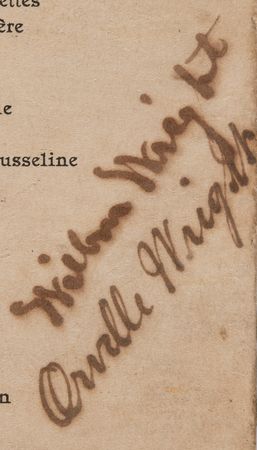 ettes
ère
le
ousseline
n
Wilbur Wright
Orville Wright